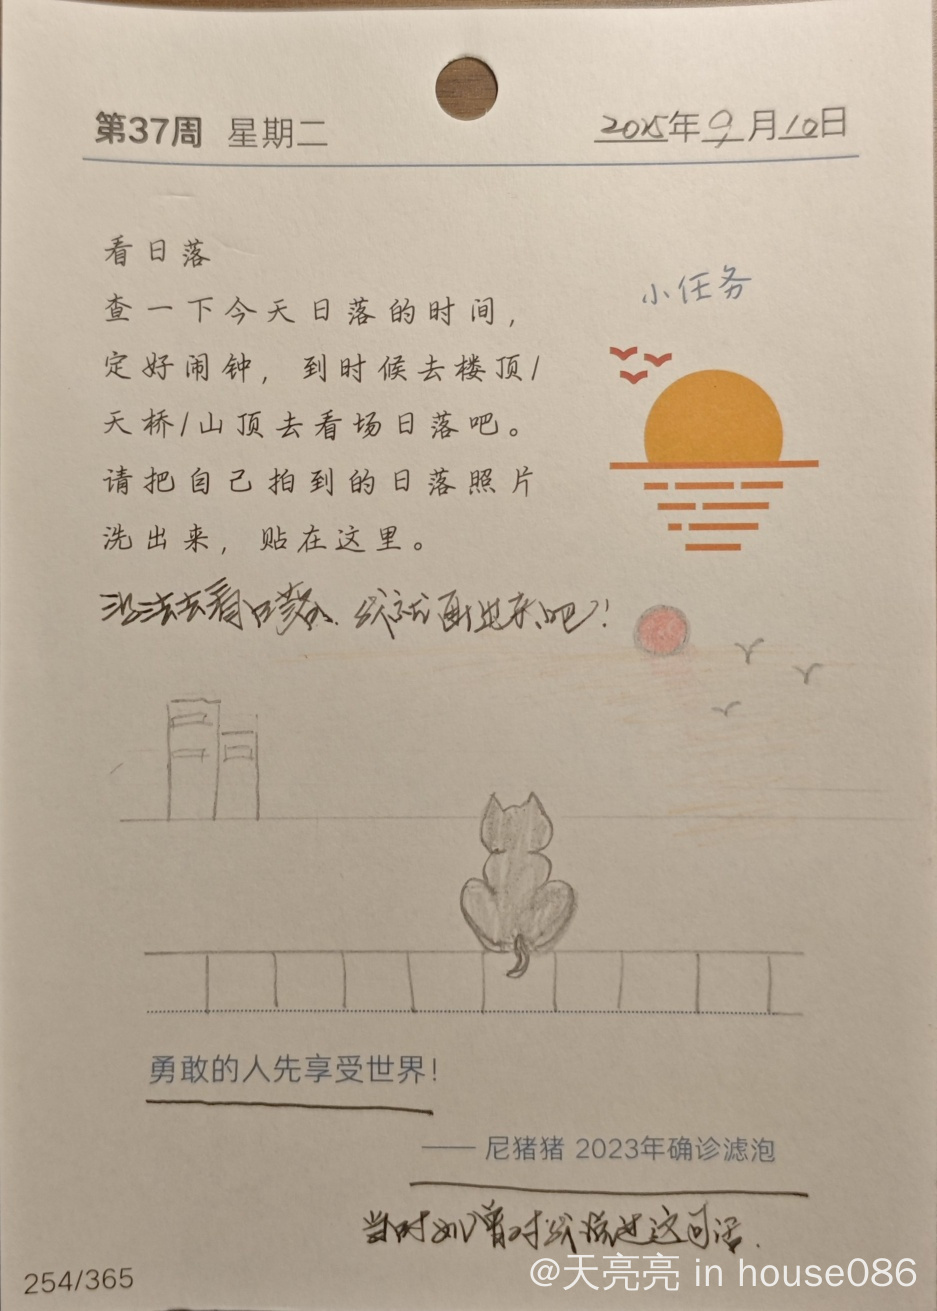 第37周 星期二 2025年9月10日
看日落
小任务
查一下今天日落的时间，
定好闹钟，到时候去楼顶/
天桥/山顶去看场日落吧。
请把自己拍到的日落照片
洗出来，贴在这里。
没法去看日落，我就画出来吧！
勇敢的人先享受世界！
—— 尼猪猪 2023年确诊滤泡
当时 曾对我说过这句话.
254/365
@天亮亮 in house086